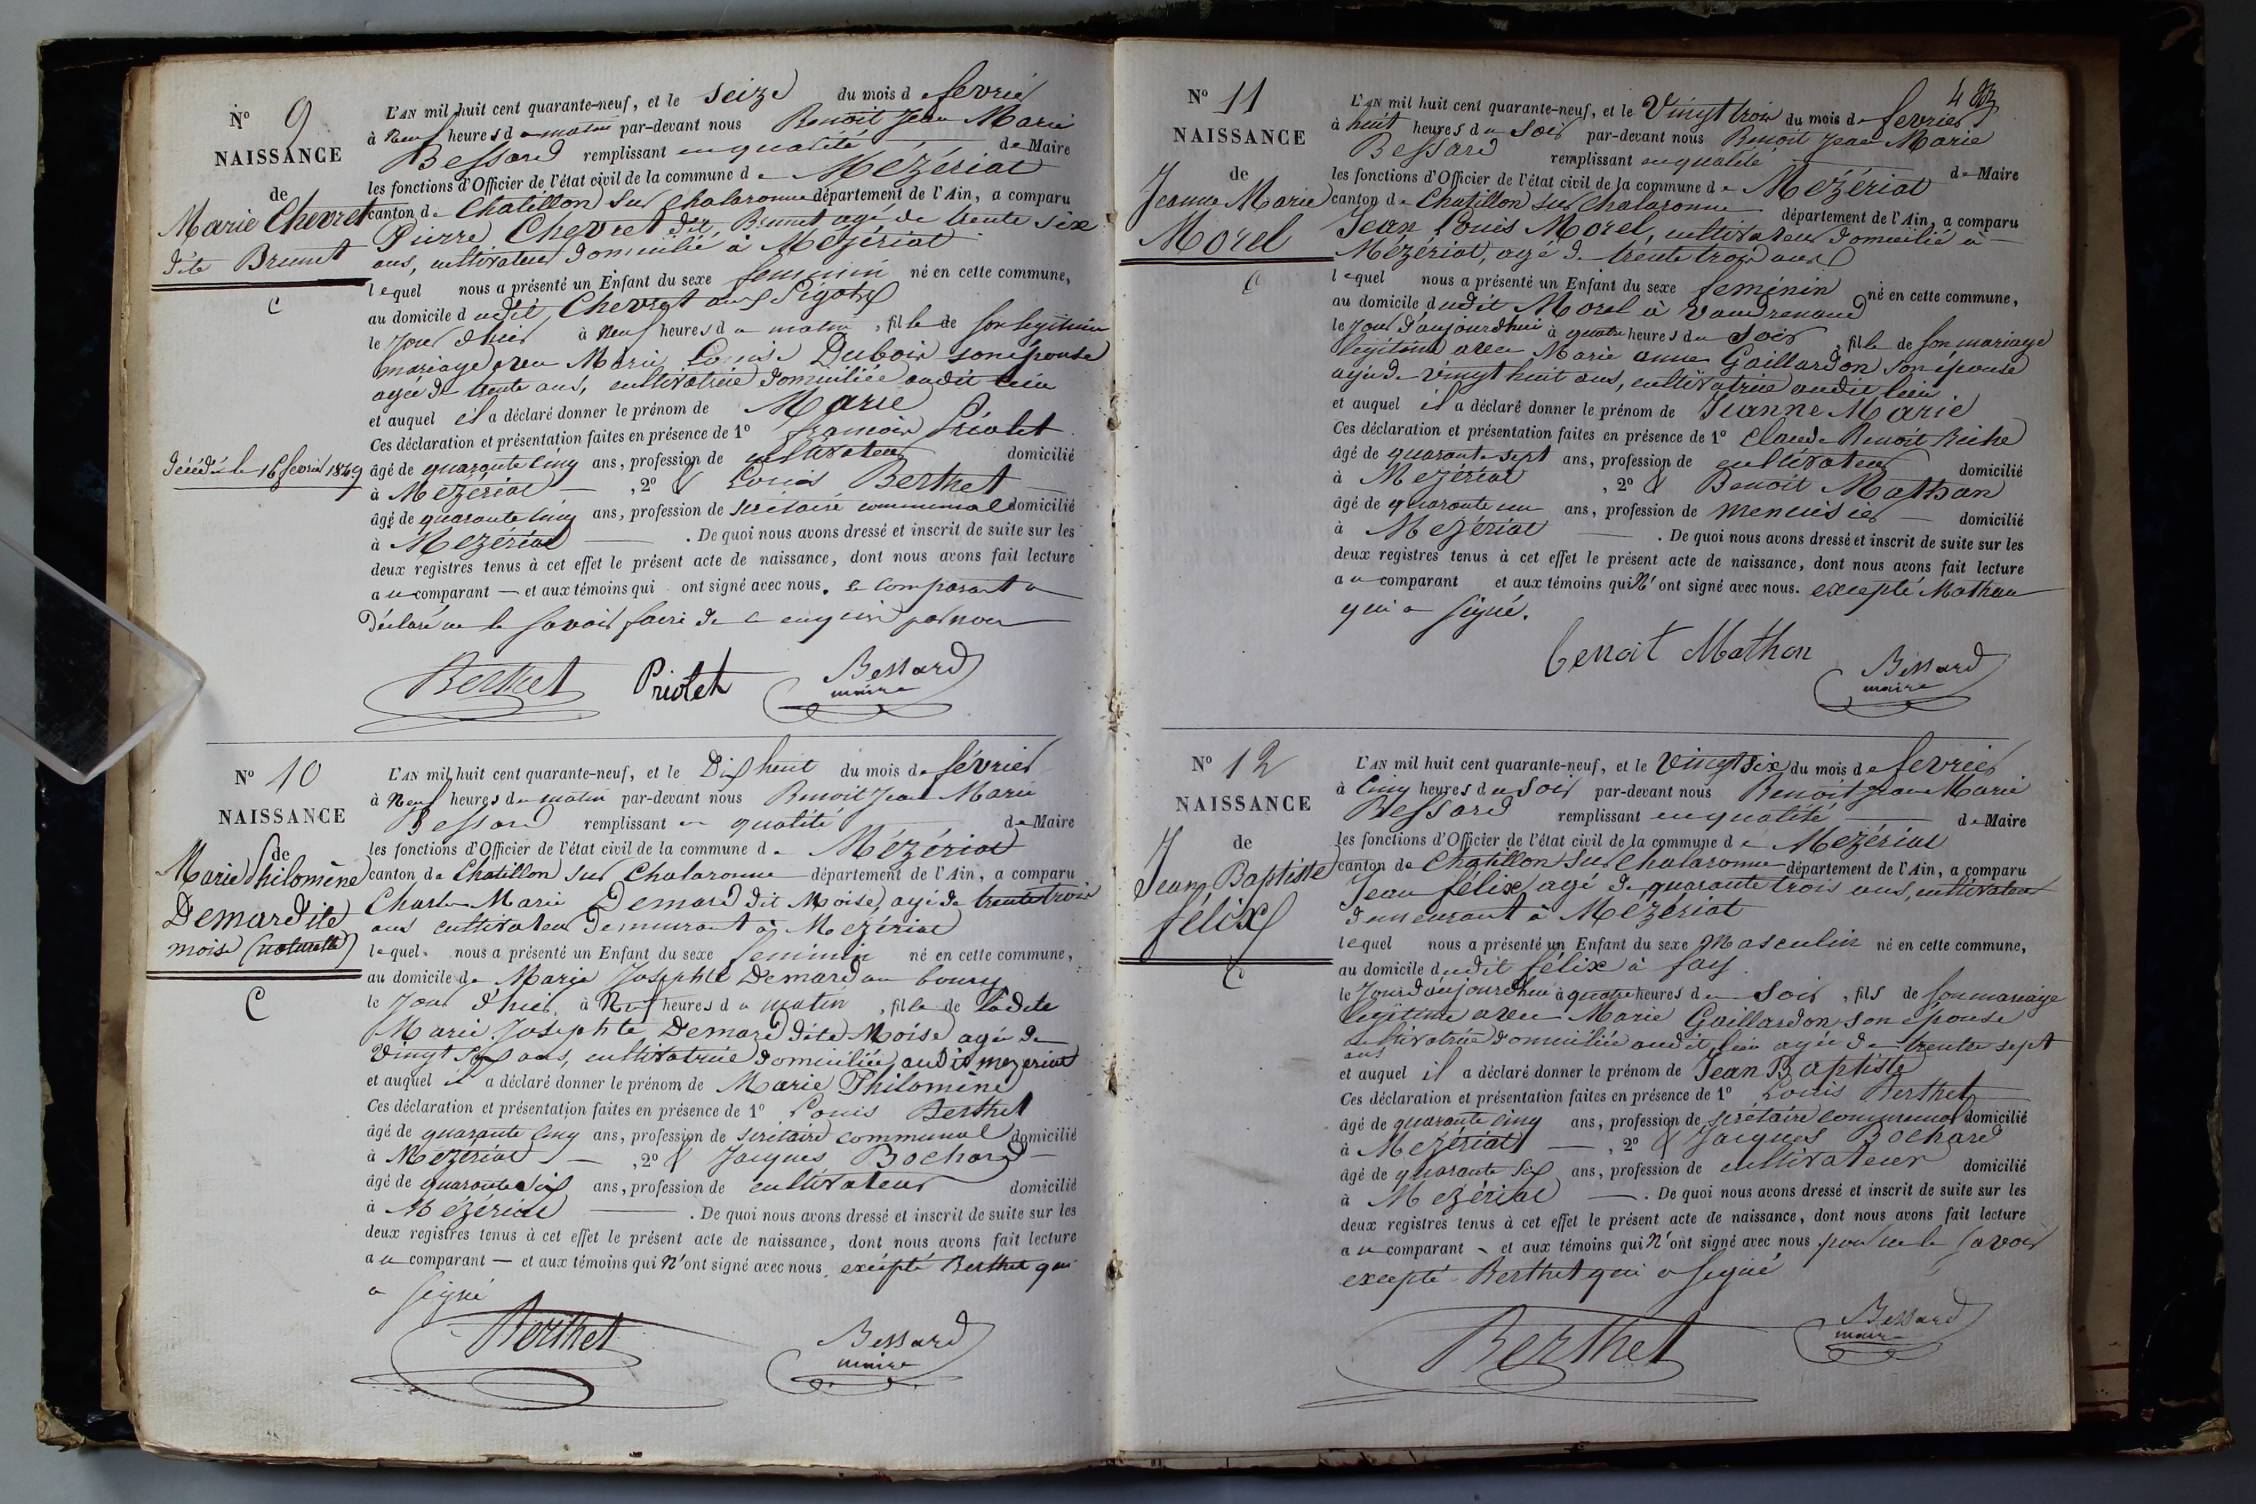 N° 9
NAISSANCE
de
Marie Chevret
dite Brunet
C
Décédée le 16 fevrier 1849
L'AN mil huit cent quarante-neuf, et le seize du mois de fevrier
à neuf heures du matin par-devant nous Benoit Jean Marie
Bessard remplissant en qualité de Maire
les fonctions d'Officier de l'état civil de la commune de Mézériat
canton de Chatillon sur Chalaronne département de l'Ain, a comparu
Pierre Chevret dit Brunet agé de trente six
ans, cultivateur domicilié à Mézériat
lequel nous a présenté un Enfant du sexe feminin né en cette commune,
au domicile dudit Chevret aux
le jour d'hier à neuf heures du matin, fille de son legitime
mariage avec Marie Louise Dubois son épouse
agée de trente ans, cultivatrice domiciliée audit lieu
et auquel il a déclaré donner le prénom de Marie
Ces déclaration et présentation faites en présence de 1° francois Priolet
âgé de quarante cinq ans, profession de cultivateur domicilié
à Mézériat — , 2° & Louis Berthet —
âgé de quarante cinq ans, profession de secrétaire communal domicilié
à Mézériat — . De quoi nous avons dressé et inscrit de suite sur les
deux registres tenus à cet effet le présent acte de naissance, dont nous avons fait lecture
au comparant — et aux témoins qui ont signé avec nous. le comparant a
déclaré ne le savoir faire de ce enquis par nous
Berthet Priolet Bessard
maire
N° 10
NAISSANCE
de
Marie Philomène
Demard dite
moise (naturelle)
C
L'AN mil huit cent quarante-neuf, et le Dix huit du mois de février
à Neuf heures du matin par-devant nous Benoit Jean Marie
Bessard remplissant en qualité de Maire
les fonctions d'Officier de l'état civil de la commune de Mézériat
canton de Chatillon sur Chalaronne département de l'Ain, a comparu
Charles Marie Demard dit Moise agé de trente trois
ans cultivateur demeurant à Mézériat
lequel nous a présenté un Enfant du sexe feminin né en cette commune,
au domicile de Marie Josephte Demard au bourg
le jour d'hier à Neuf heures du matin, fille de ladite
Marie Josephte Demard dite Moise agée de
Vingt ans, cultivatrice domiciliée audit mezeriat
et auquel il a déclaré donner le prénom de Marie Philomène
Ces déclaration et présentation faites en présence de 1° Louis Berthet
âgé de quarante cinq ans, profession de secrétaire communal domicilié
à Mézériat — , 2° & Jacques Bochard —
âgé de quarante six ans, profession de cultivateur domicilié
à Mézériat — . De quoi nous avons dressé et inscrit de suite sur les
deux registres tenus à cet effet le présent acte de naissance, dont nous avons fait lecture
au comparant — et aux témoins qui N'ont signé avec nous. excépté Berthet qui
a signé
Berthet Bessard
maire
4
N° 11
NAISSANCE
de
Jeanne Marie
Morel
C
L'AN mil huit cent quarante-neuf, et le Vingt trois du mois de fevrier
à huit heures du soir par-devant nous Benoit Jean Marie
Bessard remplissant en qualité de Maire
les fonctions d'Officier de l'état civil de la commune de Mézériat
canton de Chatillon sur Chalaronne département de l'Ain, a comparu
Jean Louis Morel, cultivateur domicilié à —
Mézériat, agé de trente trois ans
lequel nous a présenté un Enfant du sexe feminin né en cette commune,
au domicile dudit Morel à Vaudrenand
le Jour d'aujourdhui à quatre heures du soir, fille de son mariage
légitime avec Marie anne Gaillardon son épouse
agée de vingt huit ans, cultivatrice audit lieu
et auquel il a déclaré donner le prénom de Jeanne Marie
Ces déclaration et présentation faites en présence de 1° Claude Benoit
âgé de quarante sept ans, profession de cultivateur domicilié
à Mézériat , 2° & Benoit Mathon
âgé de quarante un ans, profession de menuisier — domicilié
à Mézériat — . De quoi nous avons dressé et inscrit de suite sur les
deux registres tenus à cet effet le présent acte de naissance, dont nous avons fait lecture
au comparant et aux témoins qui N'ont signé avec nous. excepté Mathon
qui a signé.
benoit Mathon Bessard
maire
N° 12
NAISSANCE
de
Jean Baptiste
félix
C
L'AN mil huit cent quarante-neuf, et le Vingt six du mois de fevrier
à Cinq heures du soir par-devant nous Benoit Jean Marie
Bessard remplissant en qualité — de Maire
les fonctions d'Officier de l'état civil de la commune de Mézériat
canton de Chatillon sur Chalaronne département de l'Ain, a comparu
Jean félix agé de quarante trois ans, cultivateur
demeurant à Mézériat
lequel nous a présenté un Enfant du sexe Masculin né en cette commune,
au domicile dudit félix à fay
le Jour d'aujourdhui à quatre heures du soir, fils de son mariage
légitime avec Marie Gaillardon son épouse
cultivatrice domiciliée audit lieu agée de trente sept
ans
et auquel il a déclaré donner le prénom de Jean Baptiste
Ces déclaration et présentation faites en présence de 1° Louis Berthet
âgé de quarante cinq ans, profession de secrétaire communal domicilié
à Mézériat — , 2° & Jacques Bochard
âgé de quarante six ans, profession de cultivateur domicilié
à Mézériat — . De quoi nous avons dressé et inscrit de suite sur les
deux registres tenus à cet effet le présent acte de naissance, dont nous avons fait lecture
au comparant - et aux témoins qui N'ont signé avec nous pour ne le savoir
excepté Berthet qui a signé
Berthet Bessard
maire